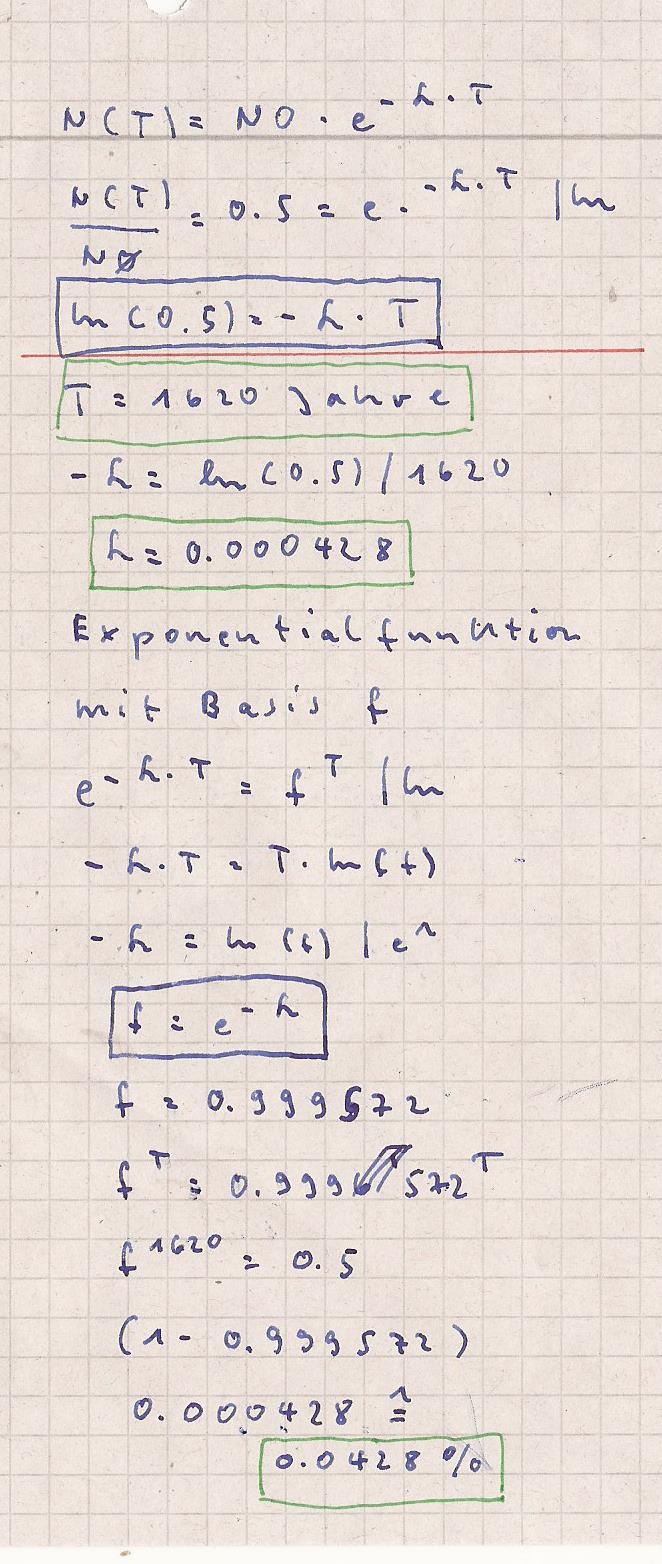 N(T) = N0 · e^-h·T
N(T)/N0 = 0.5 = e·^-h·T |ln
ln(0.5) = -h·T
T = 1620 Jahre
-h = ln(0.5)/1620
h = 0.000428
Exponentialfunktion
mit Basis f
e^-h·T = f^T |ln
-h·T = T·ln(f)
-h = ln(f) | e^
f = e^-h
f = 0.999572
f^T = 0.999572^T
f^1620 = 0.5
(1 - 0.999572)
0.000428 ≙
0.0428 %